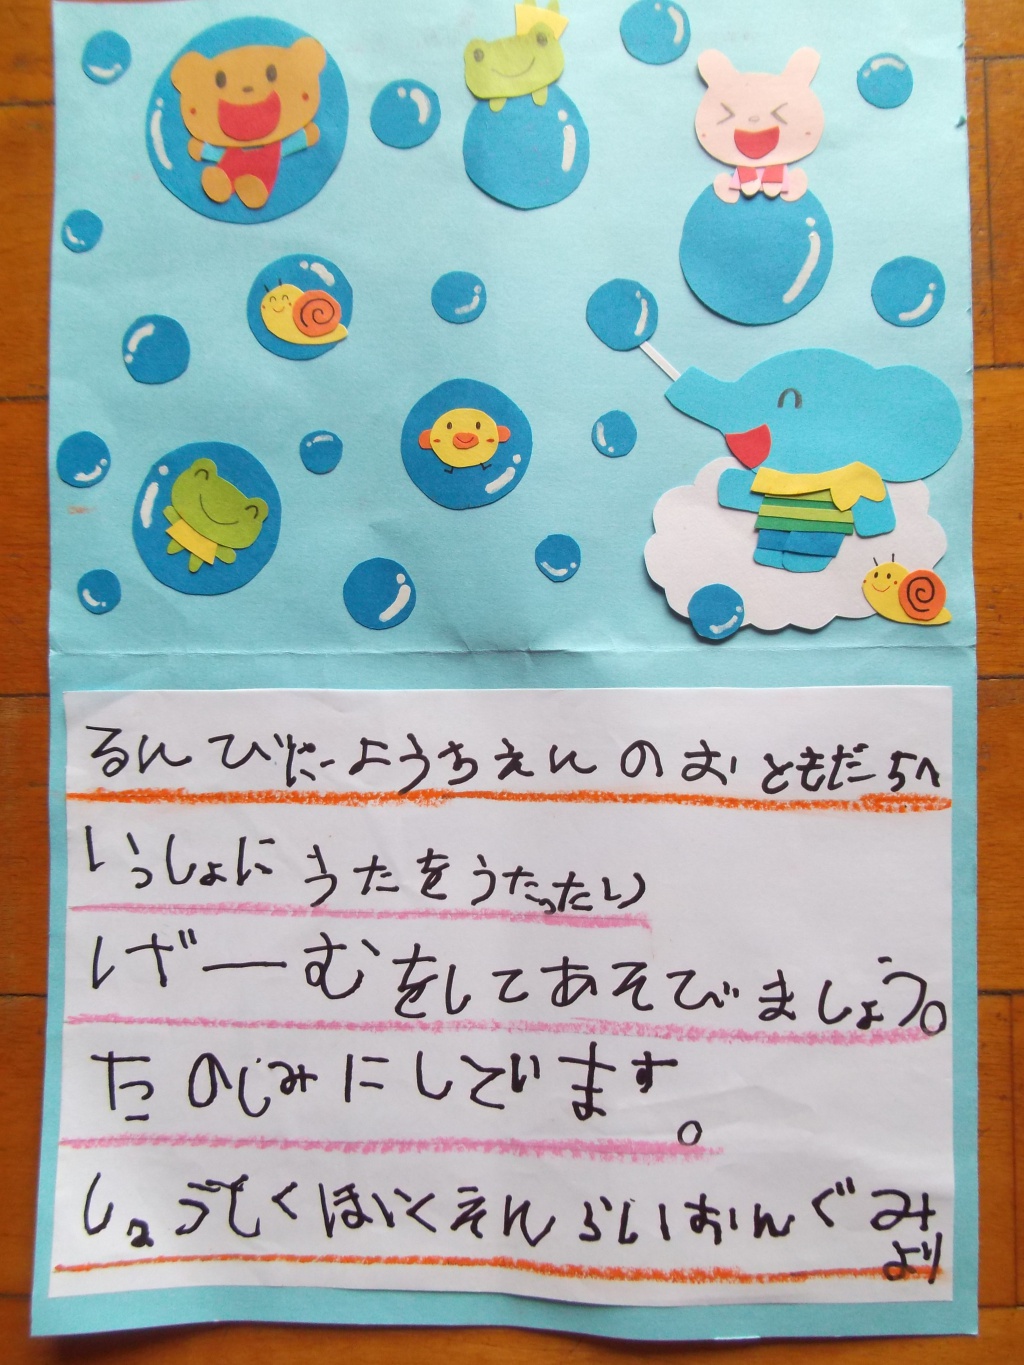 るんびにーようちえんのおともだちへ
いっしょにうたをうたったり
げーむをしてあそびましょう。
たのしみにしています。
しょうとくほいくえんらいおんぐみ
より